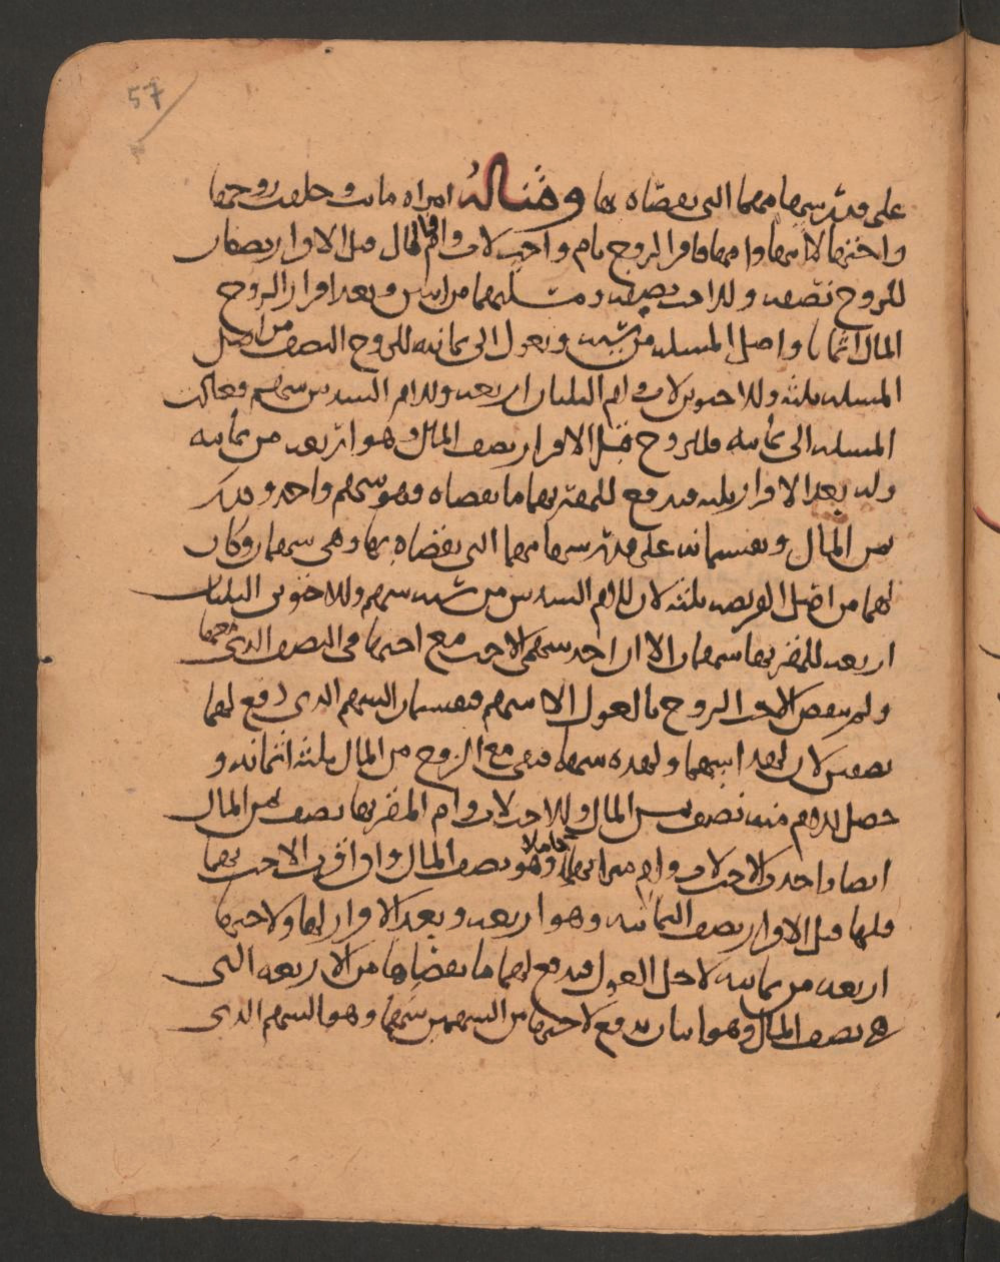 57
على قدر سهامهما التي نقصاه بها ومثاله امراه ماتت وخلفت زوجها
واختها لابيها وامها فاقر الزوج بام واخت لاب وام فالمال قبل الاقرار نصفان
للزوج نصف وللاخت نصف ومسلتهما من اثنين وبعد اقرار الزوج
المال اثمانا واصل المسله من سته وتعول الى ثمانيه للزوج النصف من اصل
المسله ثلثه وللاختين لاب وام الثلثان اربعه وللام السدس سهم فعالت
المسله الى ثمانيه فللزوج قبل الاقرار نصف المال وهو اربعه من ثمانيه
وله بعد الاقرار ثلثه فيدفع للمقر بهما ما نقصاه وهو سهم واحد وذلك
ثمن المال ويقتسمانه على قدر سهامهما التي نقصاه بها وهي سهمان وكان
لهما من اصل الفريضه ثلثه لان للام السدس من سته سهم وللاختين الثلثان
اربعه للمقر بها سهمان الا ان احد سهمي الاخت مع اختها في النصف الذي معها
ولم ينقص الاخت الزوج بالعول الا سهم فيقتسمان السهم الذي دفع لهما
نصفين لان لهذه سهما ولهذه سهما فبقي مع الزوج من المال ثلثه اثمانه و
حصل للام منه نصف ثمن المال وللاخت لاب وام المقر بها نصف ثمن المال
ايضا واخذت الاخت لاب وام ميراثها كاملا وهو نصف المال وان اقرت الاخت بهما
فلها قبل الاقرار نصف الثمانيه وهو اربعه وبعد الاقرار لها ولاختها
اربعه من ثمانيه لاجل العول فيدفع لهما ما نقصاها من الاربعه التي
هي نصف المال وهو اثنان يدفع لاختها من السهمين سهما وهو السهم الذي